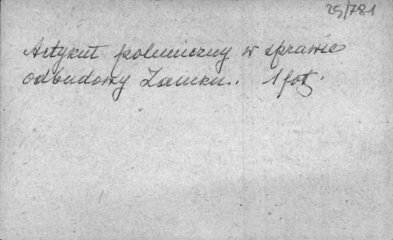 29/781
Artykuł polemiczny w sprawie
odbudowy Zamku. 1 fot.